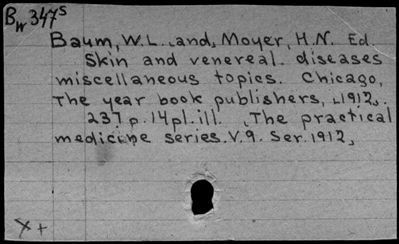 Bw347s
Baum, W.L. and, Moyer, H.N. Ed
Skin and venereal. diseases
miscellaneous topics. Chicago,
The year book publishers, 1912.
237 p. 14 pl. ill. The practical
medicine series. V.9. Ser. 1912,
x +